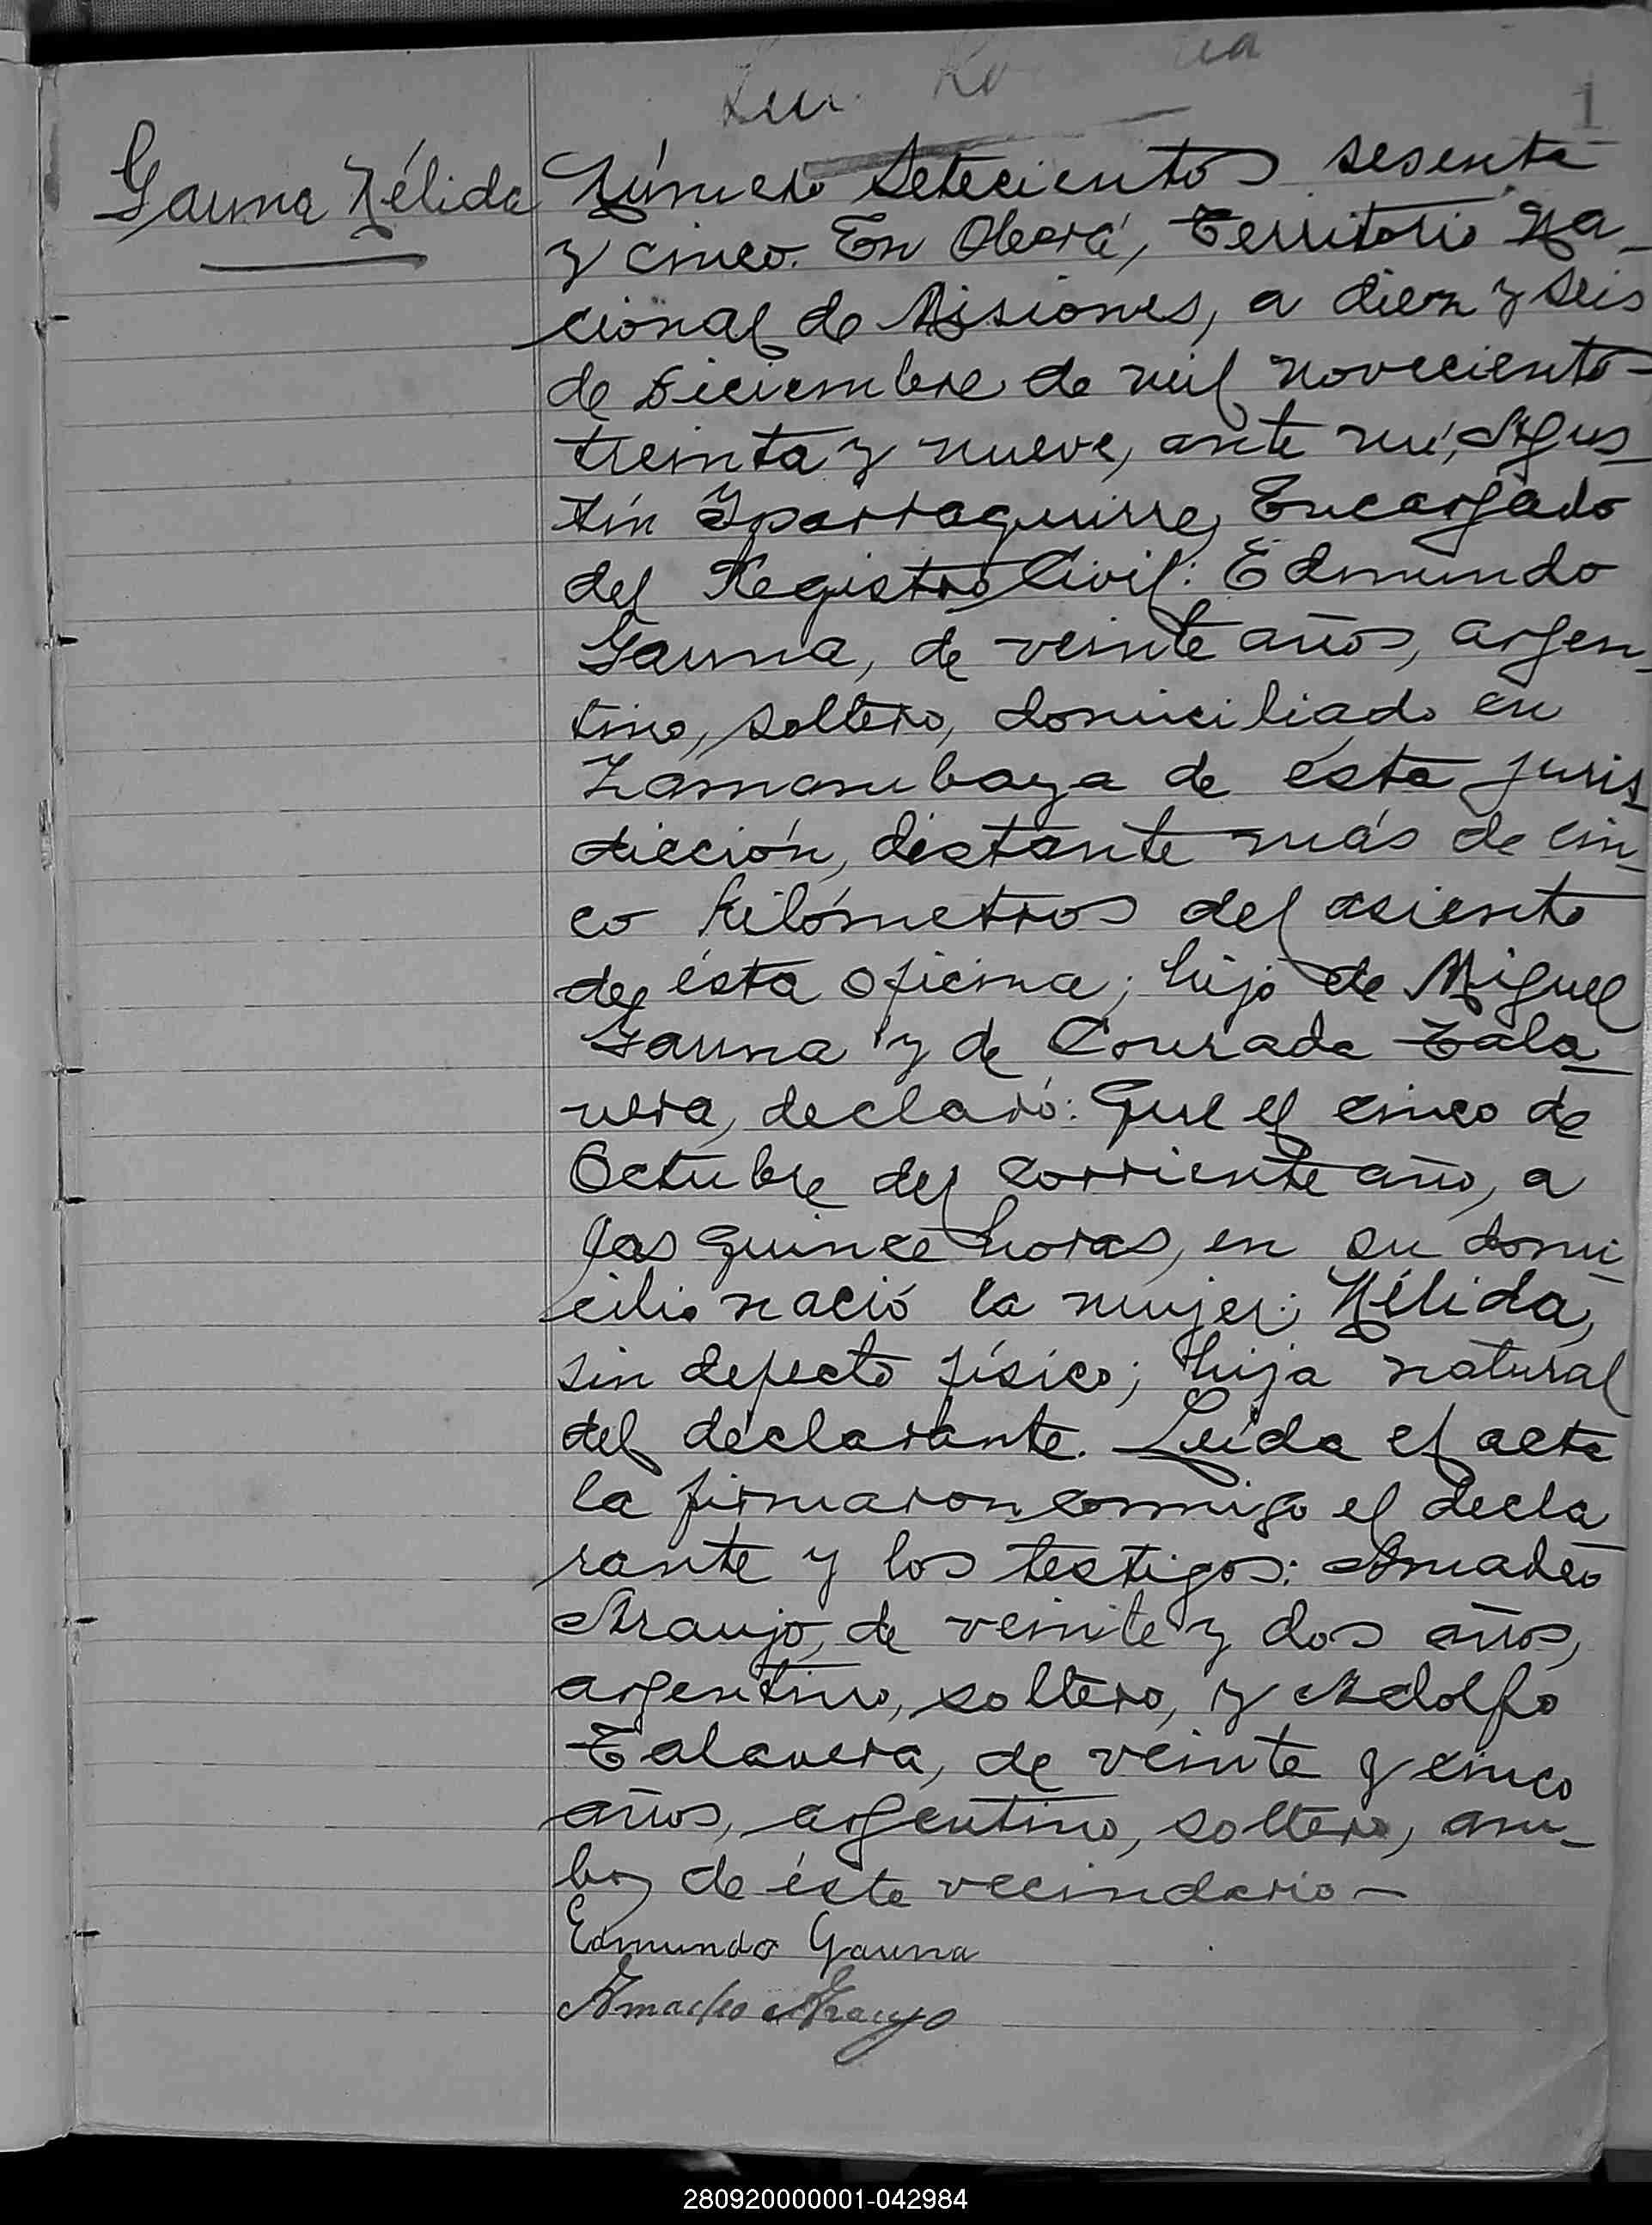 1
Gauna Nélida
Número Setecientos sesenta
y cinco. En Oberá, Territorio Na_
cional de Misiones, a diez y seis
de Diciembre de mil novecientos
treinta y nueve, ante mí, Agus_
tín Yparraguirre, Encargado
del Registro Civil: Edmundo
Gauna, de veinte años, argen_
tino, soltero, domiciliado en
de ésta juris_
dicción, distante más de cin_
co kilómetros del asiento
de ésta oficina; hijo de Miguel
Gauna y de Conrada Tala_
vera, declaró: Que el cinco de
Octubre del corriente año, a
las quince horas, en su domi_
cilio nació la mujer: Nélida,
sin defecto físico; hija natural
del declarante. Leída el acta
la firmaron conmigo el decla
rante y los testigos: Amadeo
Araujo, de veinte y dos años,
argentino, soltero, y Adolfo
Talavera, de veinte y cinco
años, argentino, soltero, am_
bos de éste vecindario—
Edmundo Gauna
Amadeo Araujo
280920000001-042984